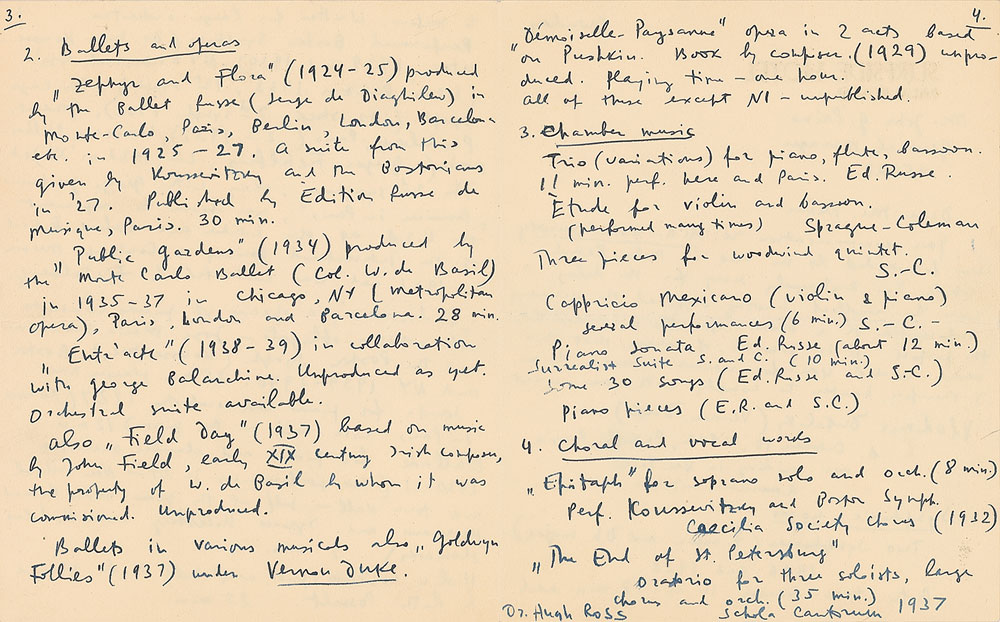 3.
2. Ballets and operas
„Zephyr and Flora" (1924-25) produced
by the Ballet Russe (Serge de Diaghilev) in
Monte-Carlo, Paris, Berlin, London, Barcelona
etc. in 1925-27. A suite from this
given by Koussevitzky and the Bostonians
in '27. Published by Edition Russe de
Musique, Paris. 30 min.
„Public Gardens" (1934) produced by
the Monte Carlo Ballet (Col. W. de Basil)
in 1935-37 in Chicago, NY (Metropolitan
opera), Paris, London and Barcelona. 28 min.
„Entr'acte" (1938-39) in collaboration
with George Balanchine. Unproduced as yet.
Orchestral suite available.
also „Field Day" (1937) based on music
by John Field, early XIX century Irish composer,
the property of W. de Basil by whom it was
commissioned. Unproduced.
Ballets in various musicals also „Goldwyn
Follies" (1937) under Vernon Duke.
4.
„Démoiselle-Paysanne" opera in 2 acts based
on Pushkin. Book by composer. (1929) unpro-
duced. Playing time - one hour.
all of these except N1 - unpublished.
3. Chamber music
Trio (variations) for piano, flute, bassoon.
11 min. perf. here and Paris. Ed. Russe.
Etude for violin and bassoon.
(performed many times) Sprague-Coleman
Three pieces for woodwind quintet.
S.-C.
Cappricio Mexicano (violin & piano)
several performances (6 min.) S.-C.-
Piano Sonata Ed. Russe (about 12 min.)
Surrealist Suite S. and C. (10 min.)
Some 30 songs (Ed. Russe and S.-C.)
Piano pieces (E.R. and S.C.)
4. Choral and vocal words
„Epitaph" for soprano solo and orch. (8 min.)
Perf. Koussevitzky and Boston Symph.
Caecilia Society chorus (1932)
„The End of St. Petersburg"
Oratorio for three soloists, large
chorus and orch. (35 min.)
Dr. Hugh Ross Schola Cantorum 1937